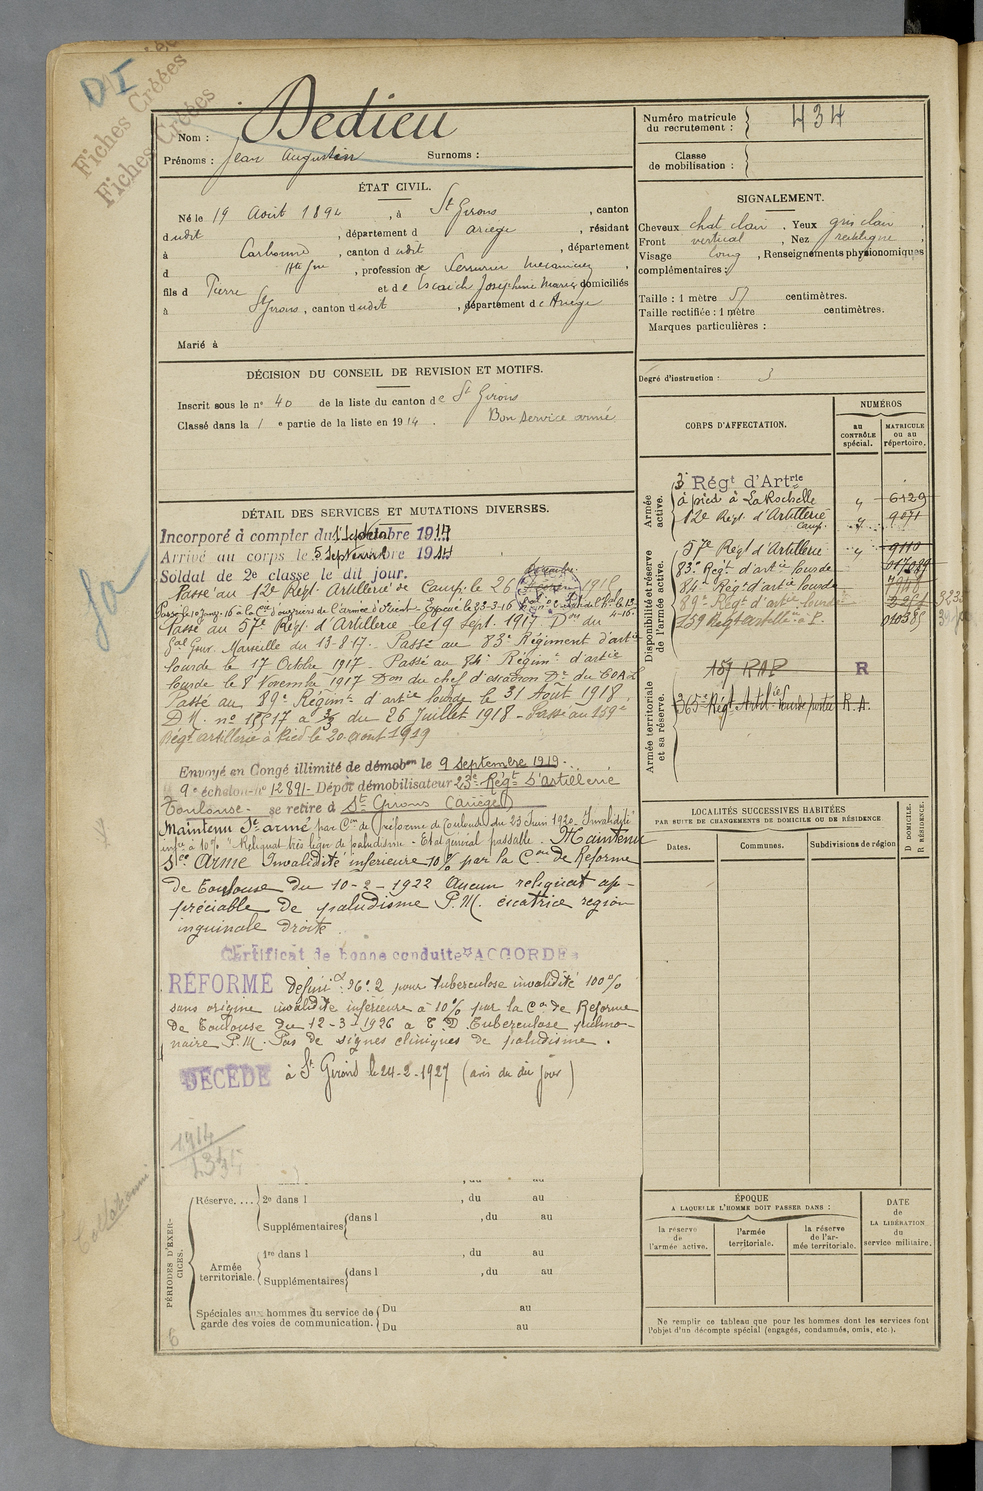 D I
Fiches Créées
Fiches Créées
Nom : Dedieu
Prénoms : Jean Augustin Surnoms :
Numéro matricule du recrutement : 434
Classe de mobilisation :
ÉTAT CIVIL.
Né le 19 Août 1894, à St Girons, canton
dudit, département d Ariège, résidant
à Carbonne, canton d udit, département
d Hte Gne, profession de Serrurier mecanicien,
fils d Pierre et de Escaich Joséphine Marie domiciliés
à St Girons, canton dudit, département de Ariège
Marié à
SIGNALEMENT.
Cheveux chat clair, Yeux gris clair,
Front vertical, Nez rectiligne,
Visage long, Renseignements physionomiques
complémentaires :
Taille : 1 mètre 57 centimètres.
Taille rectifiée : 1 mètre centimètres.
Marques particulières :
Degré d'instruction : 3
DÉCISION DU CONSEIL DE REVISION ET MOTIFS.
Inscrit sous le n° 40 de la liste du canton de St Girons
Classé dans la 1 e partie de la liste en 1914. Bon service armé
CORPS D'AFFECTATION.
NUMÉROS
au CONTRÔLE spécial.
MATRICULE ou au répertoire.
Armée active.
3e Régt d'Artrie
à pied à La Rochelle " 6129
12e Régt d'Artillerie " 9071
camp.
Disponibilité et réserve de l'armée active.
57e Régt d'Artillerie " 9110
83e Régt d'artie lourde
84e Régt d'artie lourde
89e Régt d'artie lourde
159 Régt artillerie à P.
Armée territoriale et sa réserve.
159 RAP R
365e Régt Artilie lourde portée R.A.
DÉTAIL DES SERVICES ET MUTATIONS DIVERSES.
Incorporé à compter du 1 Septembre 1914
Arrivé au corps le 5 Septembre 1914
Soldat de 2e classe le dit jour.
Passé au 12e Régt Artillerie de Camp. le 26 décembre 1915
Passé au 57e Régt d'Artillerie le 19 Sept. 1917 Don du
Gal Gouv. Marseille du 13-8-17. Passé au 83e Régiment d'artie
lourde le 17 Octbre 1917. Passé au 84e Régimt d'artie
lourde le 8 Novembre 1917 Don du chef d'escadron Dt du 60 A L
Passé au 89e Régimt d'artie lourde le 31 Août 1918,
du 26 Juillet 1918 - Passé au 159e
Régt artillerie à Pied le 20 août 1919
Envoyé en Congé illimité de démobon le 9 septembre 1919.
9e échelon - n° 12891 - Dépôt démobilisateur 23e Régt d'Artillerie
Toulouse - se retire à St Girons (Ariège)
Maintenu Sce armé par Con de réforme de Toulouse du 23 Juin 1920. Invalidité
infre à 10% "Reliquat très léger de paludisme - Etat général passable. Maintenu
Sce Armé Invalidité inférieure 10% par la Con de Réforme
de Toulouse du 10-2-1922 Aucun reliquat ap-
préciable de paludisme P.M. cicatrice région
inguinale droite
Certificat de bonne conduite "ACCORDÉ"
RÉFORMÉ Définif n° 2 pour tuberculose invalidité 100%
sans origine invalidité inférieure à 10% par la Con de Réforme
de Toulouse du 12-3-1926 Tuberculose pulmo-
naire P.M. Pas de signes cliniques de paludisme.
DÉCÉDÉ à St Girons le 24-2-1927 (avis du dit jour)
1914
LOCALITÉS SUCCESSIVES HABITÉES
PAR SUITE DE CHANGEMENTS DE DOMICILE OU DE RÉSIDENCE.
Dates. Communes. Subdivisions de région D DOMICILE. R RÉSIDENCE.
PÉRIODES D'EXERCICES.
Réserve.... 2e dans l , du au
Supplémentaires dans l , du au
Armée territoriale. 1re dans l , du au
Supplémentaires dans l , du au
Spéciales aux hommes du service de garde des voies de communication. Du au
Du au
ÉPOQUE
A LAQUELLE L'HOMME DOIT PASSER DANS :
la réserve de l'armée active.
l'armée territoriale.
la réserve de l'armée territoriale.
DATE de LA LIBÉRATION du service militaire.
Ne remplir ce tableau que pour les hommes dont les services font
l'objet d'un décompte spécial (engagés, condamnés, omis, etc.).
6